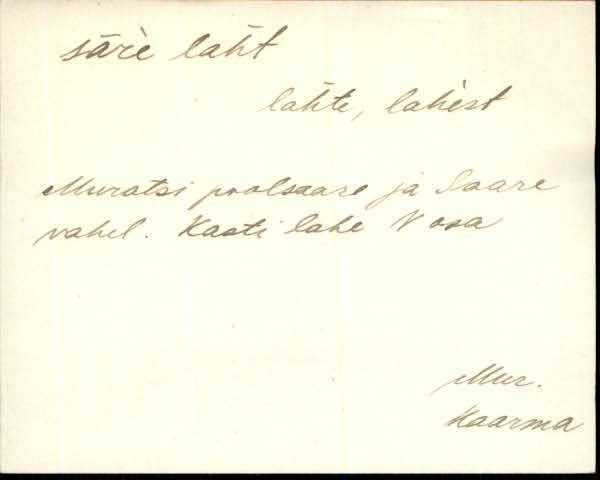 säre laht
lahte, lahest
Muratsi poolsaare ja Saare
vahel. Kasti lahe N osa
Mur.
Kaarma